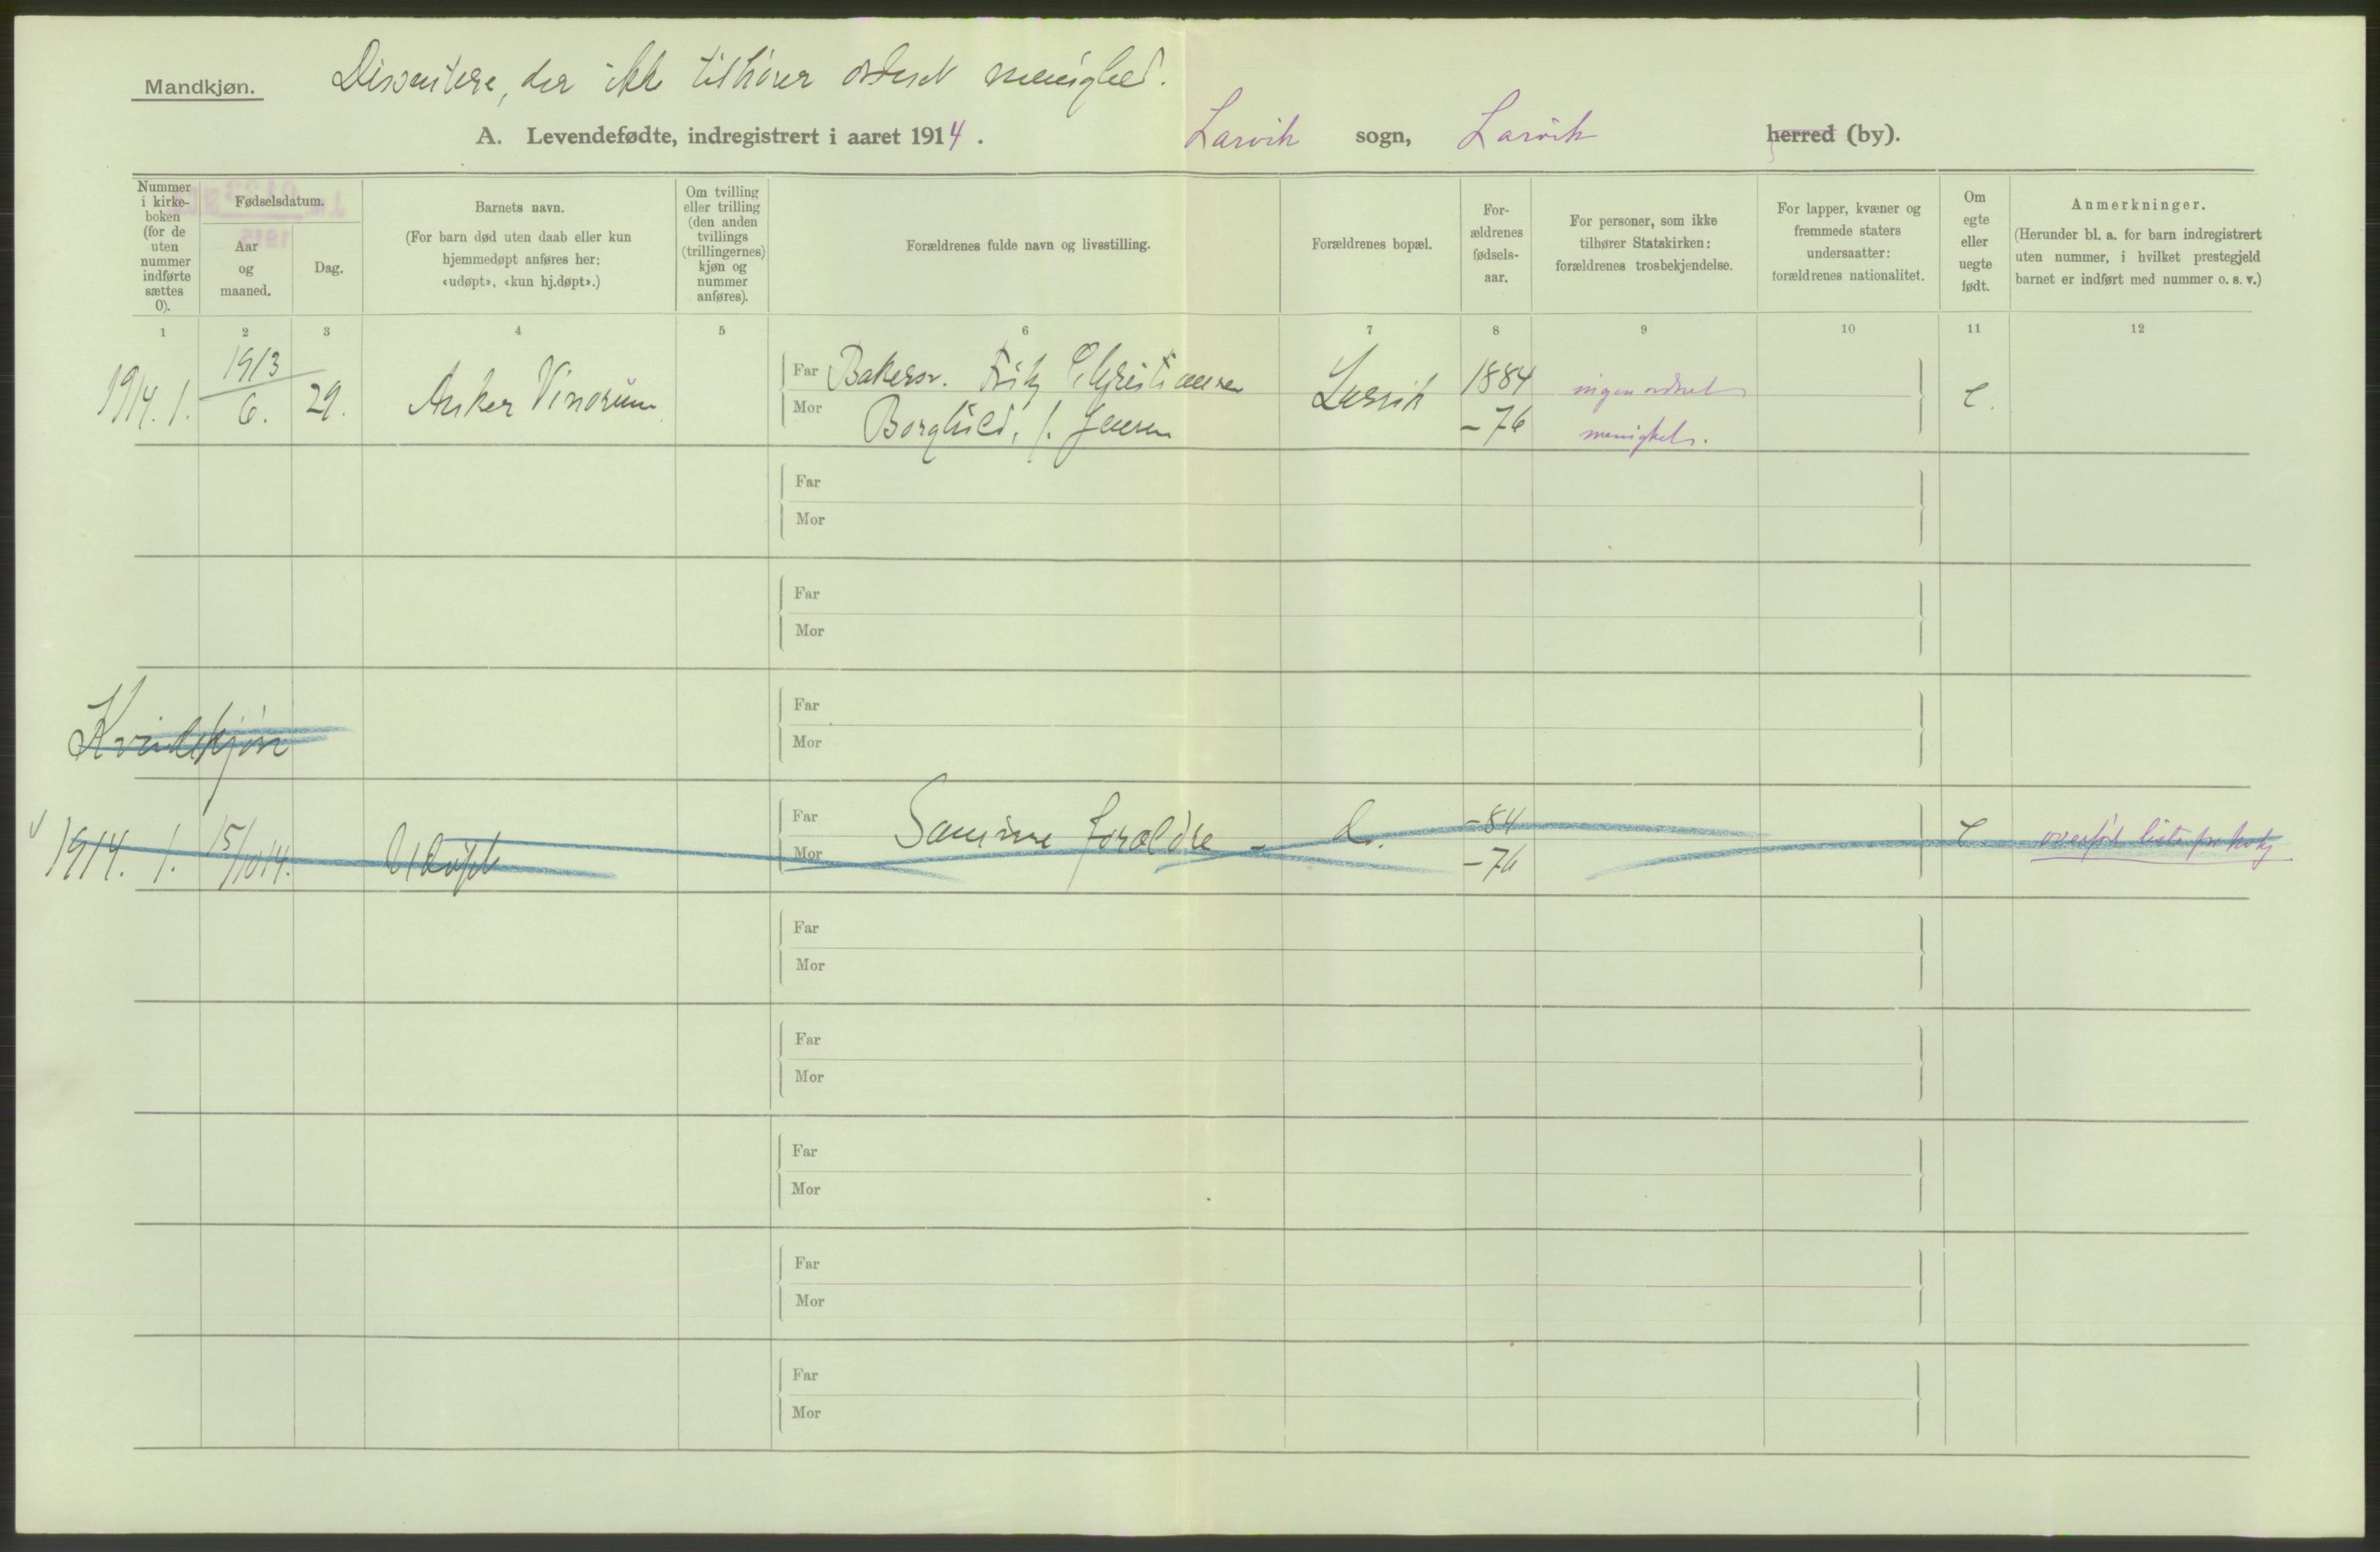 Mandkjøn.
Dissentere, der ikke tilhører ordnet menighed.
A. Levendefødte, indregistrert i aaret 1914. Larvik sogn, Larvik herred (by).
Nummer i kirke-boken (for de uten nummer indførte sættes 0).
Fødselsdatum.
Aar og maaned.
Dag.
Barnets navn.
(For barn død uten daab eller kun hjemmedøpt anføres her: «udøpt», «kun hj.døpt».)
Om tvilling eller trilling (den anden tvillings (trillingernes) kjøn og nummer anføres).
Forældrenes fulde navn og livsstilling.
Forældrenes bopæl.
For-ældrenes fødsels-aar.
For personer, som ikke tilhører Statskirken: forældrenes trosbekjendelse.
For lapper, kvæner og fremmede staters undersaatter: forældrenes nationalitet.
Om egte eller uegte født.
Anmerkninger.
(Herunder bl. a. for barn indregistrert uten nummer, i hvilket prestegjeld barnet er indført med nummer o. s. v.)
1 2 3 4 5 6 7 8 9 10 11 12
1914. 1. 1913 6. 29. Asker Vinorum Far Bakersv. Fritz Christiansen Larvik 1884 ingen ordnet e.
Mor Borghild, f. Jensen – 76 menighet.
Far
Mor
Far
Mor
Kvindekjøn
Far
Mor
1914. 1. 15/10 14. Udøpt Far Samme forældre - do. – 84 e.
Mor – 76
Far
Mor
Far
Mor
Far
Mor
Far
Mor
Far
Mor